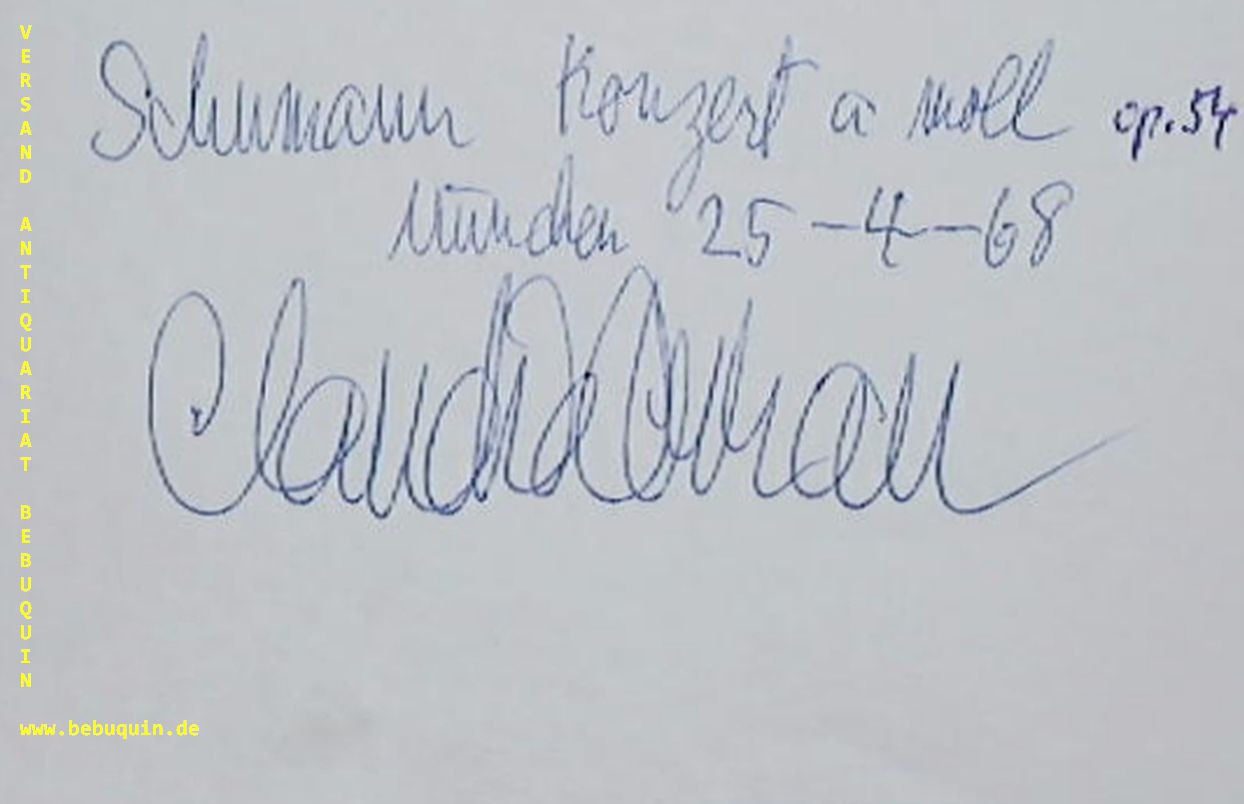 Schumann Konzert a moll op. 54
München 25-4-68
VERSAND ANTIQUARIAT BEBUQUIN
www.bebuquin.de